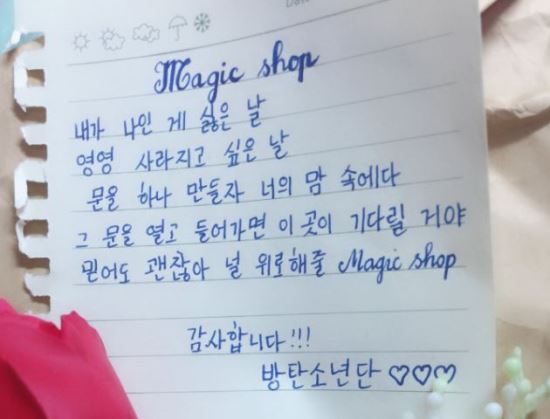 Date
Magic shop
내가 나인 게 싫은 날
영영 사라지고 싶은 날
문을 하나 만들자 너의 맘 속에다
그 문을 열고 들어가면 이 곳이 기다릴 거야
믿어도 괜찮아 널 위로해줄 Magic shop
감사합니다!!!
방탄소년단 ♡♡♡